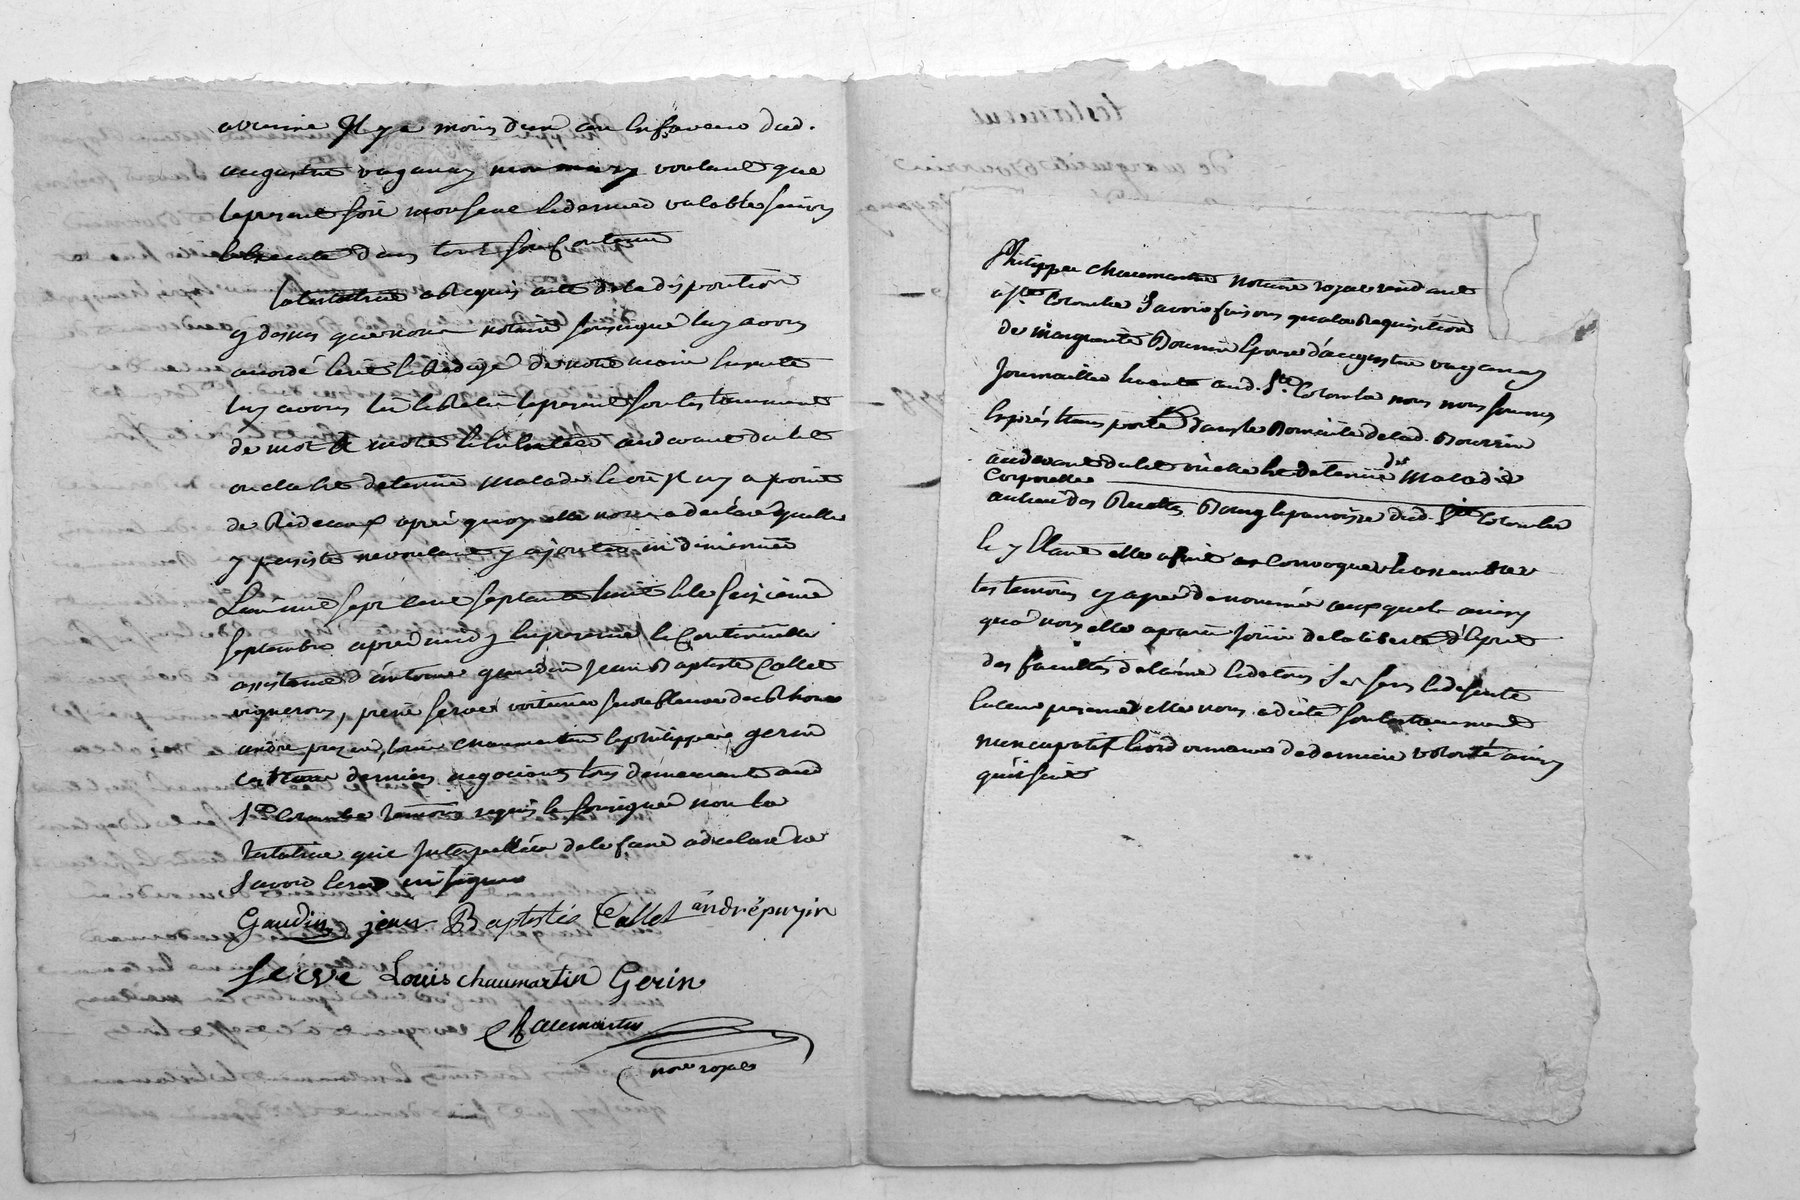 avenir Il y a moins d'un an en faveur dud.
augustin vaganay mon mary voulant que
le present soit mon seul et dernier valable suivy
et execute dans tout son contenu
la testatrice a Requis acte de la disposition
cy dessus que nous notaire soussigné luy avons
accordé ecrit et Redigé de notre main ensuite
luy avons lû et Relû le present son testament
de mot à mot audevant du lit
ou elle est detenue malade et où il n'y a point
de Rideaux après quoy elle nous a declaré qu'elle
y persiste ne voulant y ajouter ni diminuer
L'an mil sept cent septante huit et le seizième
septembre après midy en presence et continuelle
assistance d'antoine gaudin Jean Baptiste Callet
vignerons, serve voiturier sur fleuve du Rhone
andre puzin, louis chaumartin et philippe gerin
ces derniers negocians tous demeurants aud
Ste Colombe temoins requis et soussignés non la
testatrice qui Interpellée de le faire a declaré ne
Savoir ecrire ni signer
Gaudin jean Baptiste Callet andré puzin
Serve Louis chaumartin Gerin
Chaumartin
nore royal
testament
de marguerite Bourrin
Philippe chaumartin notaire royal residant
à Ste Colombe Savoir faisons qu'a la Requisition
de marguerite Bourrin Epouse d'augustin vaganay
Journaillier habitant aud. Ste Colombe nous nous sommes
exprés transporté dans le Domicile de lad. Bourrin
audevant du lit où elle est detenue de Maladie
Corporelle
au lieu des Ruettes Bourg et parroisse dud. Ste Colombe
et y étant elle a fait convoquer et assembler
les temoins cy après denommés auxquels ainsy
qu'à nous elle a paru Jouir de la liberté d'esprit
des facultés de l'ame et de tous Ses sens et de suite
en leur presence elle nous a dicté son testament
nuncupatif et ordonnance de derniere volonté ainsy
qu'il suit